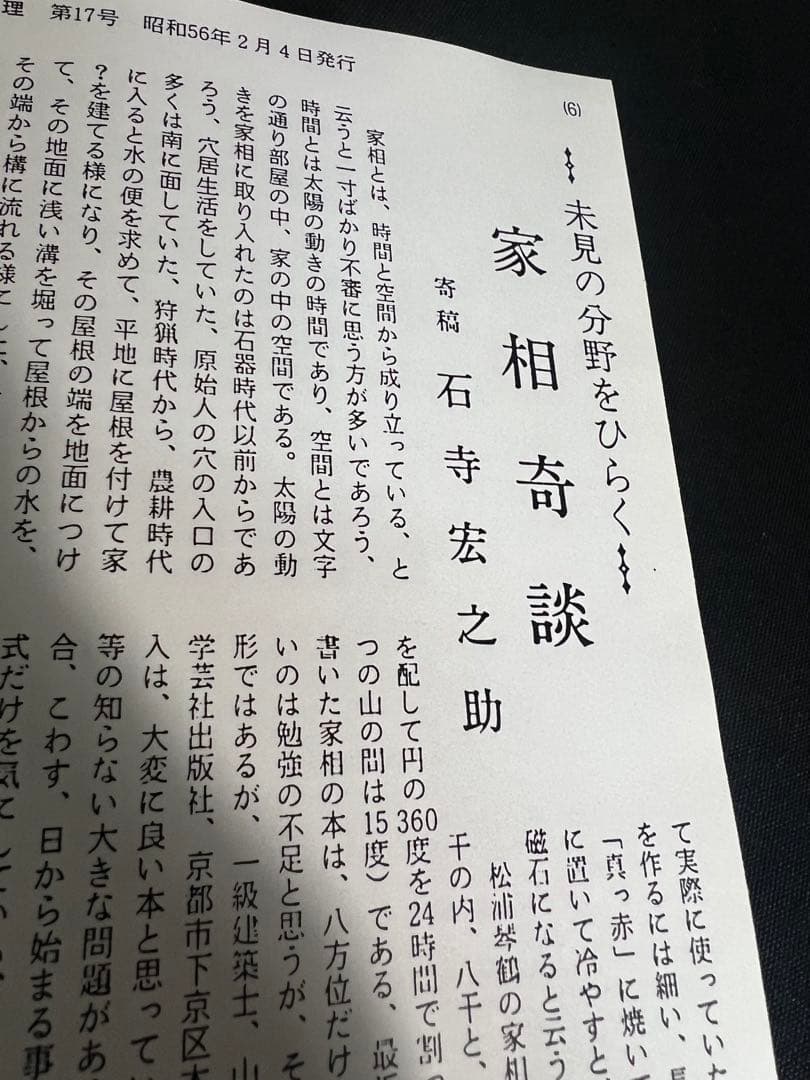 理 第17号 昭和56年2月4日発行
(6)
未見の分野をひらく
家相奇談
寄稿 石寺宏之助
家相とは、時間と空間から成り立っている、と
云うと一寸ばかり不審に思う方が多いであろう、
時間とは太陽の動きの時間であり、空間とは文字
の通り部屋の中、家の中の空間である。太陽の動
きを家相に取り入れたのは石器時代以前からであ
ろう、穴居生活をしていた、原始人の穴の入口の
多くは南に面していた、狩猟時代から、農耕時代
に入ると水の便を求めて、平地に屋根を付けて家
?を建てる様になり、その屋根の端を地面につけ
て、その地面に浅い溝を堀って屋根からの水を、
その端から構に流れる様にした、
て実際に使っていた
を作るには細い、長
「真っ赤」に焼いて
に置いて冷やすと
磁石になると云う
松浦琴鶴の家相
千の内、八千と、
を配して円の360度を24時間で割っ
つの山の間は15度)である、最近
書いた家相の本は、八方位だけ
いのは勉強の不足と思うが、そ
形ではあるが、一級建築士、山
学芸社出版社、京都市下京区木
入は、大変に良い本と思ってい
等の知らない大きな問題があ
合、こわす、日から始まる事
式だけを気にしている、